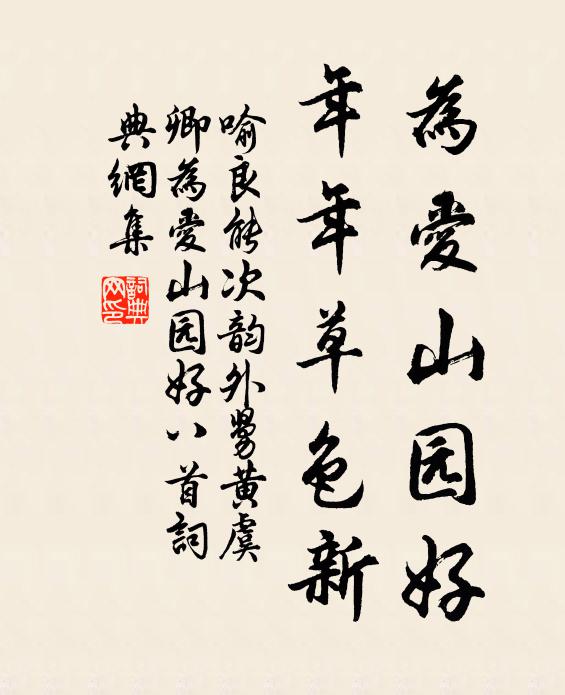 為愛山园好
年年草色新
喻良能次韵外舅黃虞
卿為愛山园好八首詞
典網集
詞典网印